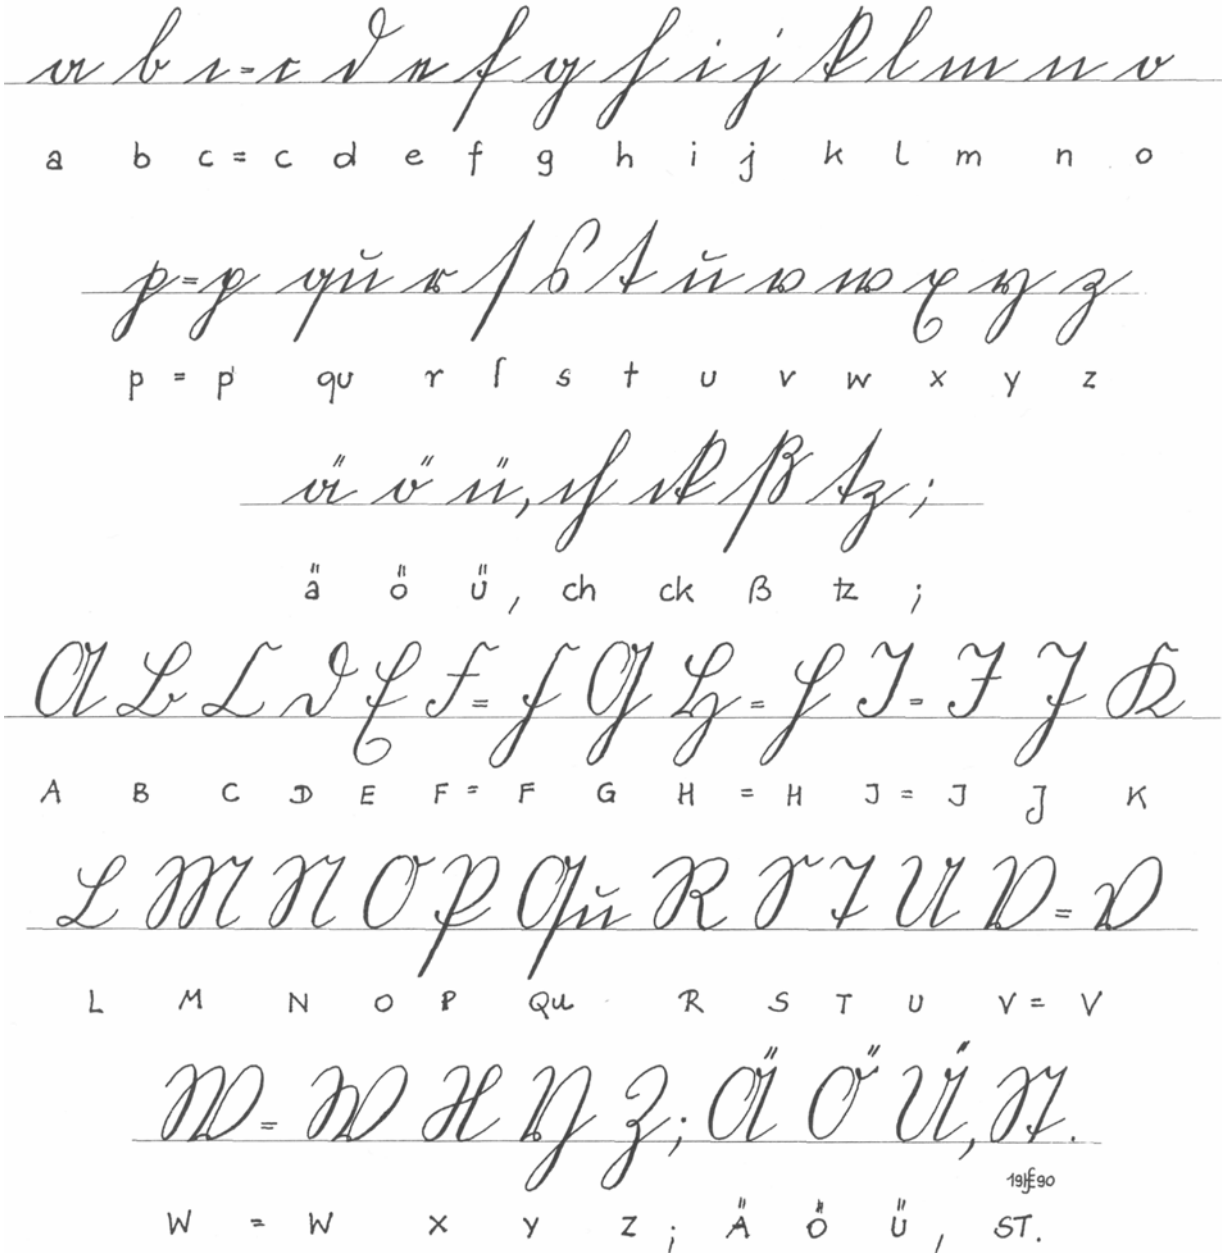 a b c = c d e f g h i j k l m n o
a b c = c d e f g h i j k l m n o
p = p qu r ſ s t u v w x y z
p = p qu r ſ s t u v w x y z
ä ö ü, ch ck ß tz ;
ä ö ü , ch ck ß tz ;
A B C D E F = F G H = H J = J J K
A B C D E F = F G H = H J = J J K
L M N O P Qu R S T U V = V
L M N O P Qu R S T U V = V
W = W X Y Z ; Ä Ö Ü, St.
W = W X Y Z ; Ä Ö Ü , ST.